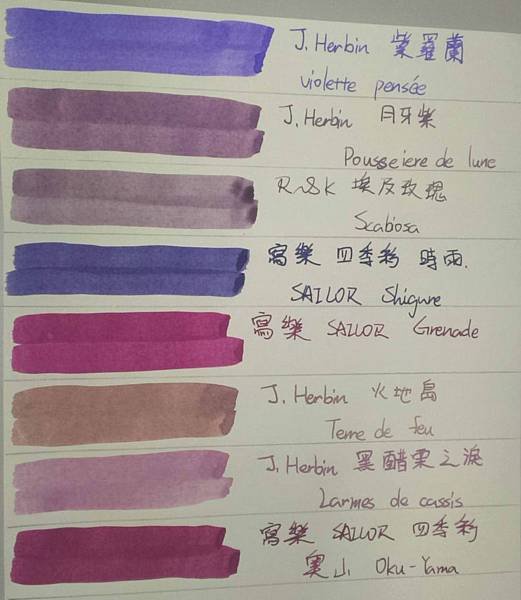 J. Herbin 紫羅蘭
violette pensée
J. Herbin 月牙紫
Pousseiere de lune
R&K 埃及玫瑰
Scabiosa
寫樂 四季彩 時雨.
SAILOR Shigure
寫樂 SAILOR Grenade
J. Herbin 火地島
Terre de feu
J. Herbin 黑醋栗之淚
Larmes de cassis
寫樂 SAILOR 四季彩
奧山 Oku-Yama